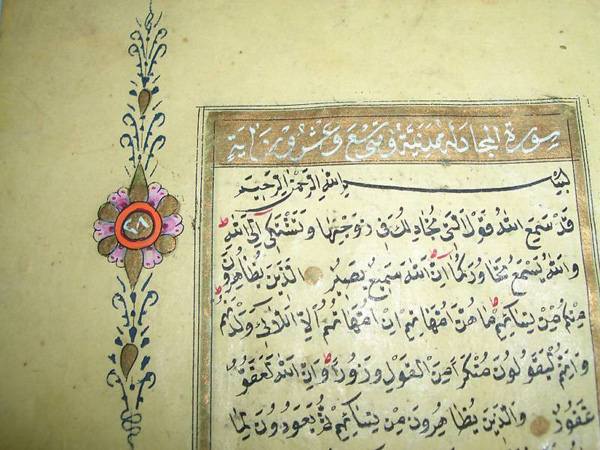 سورة المجادله مدنية وتسع وعشرون اية
بسم الله الرحمن الرحيم
قَدْ سَمِعَ اللهُ قَوْلَ الَّتِى تُجَادِلُكَ فِى زَوْجِهَا وَتَشْتَكِى اِلَى اللهِ
وَاللهُ يَسْمَعُ تَحَاوُرَكُمَا اِنَّ اللهَ سَمِيعٌ بَصِيرٌ اَلَّذِينَ يُظَاهِرُونَ
مِنْكُمْ مِنْ نِسَائِهِمْ مَا هُنَّ اُمَّهَاتِهِمْ اِنْ اُمَّهَاتُهُمْ اِلَّا اللَّائِى وَلَدْنَهُمْ
وَاِنَّهُمْ لَيَقُولُونَ مُنْكَرًا مِنَ الْقَوْلِ وَزُورًا وَاِنَّ اللهَ لَعَفُوٌّ
غَفُورٌ وَالَّذِينَ يُظَاهِرُونَ مِنْ نِسَائِهِمْ ثُمَّ يَعُودُونَ لِمَا
٢٨